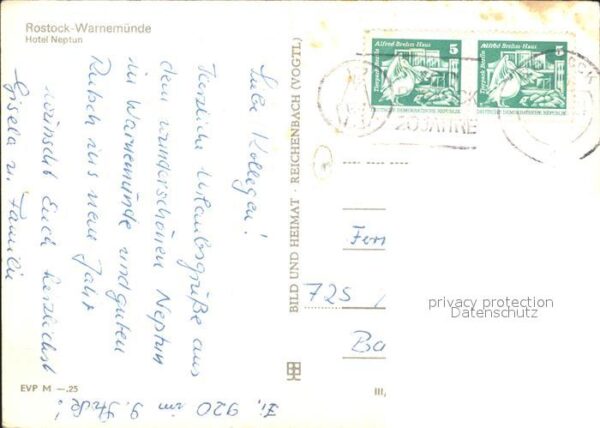 Rostock-Warnemünde
Hotel Neptun
Liebe Kollegen!
Herzliche Urlaubsgrüße aus
dem wunderschönen Neptun
in Warnemünde und guten
Rutsch ins neue Jahr
wünscht Euch herzlichst
Gisela u. Familie
Zi. 920 im 9. Stock!
EVP M —.25
BILD UND HEIMAT · REICHENBACH (VOGTL)
Alfred Brehm-Haus 5
Tierpark Berlin
DEUTSCHE DEMOKRATISCHE REPUBLIK
Alfred Brehm-Haus 5
Tierpark Berlin
DEUTSCHE DEMOKRATISCHE REPUBLIK
20 JAHRE
Fern
725
Ba
privacy protection
Datenschutz
III,